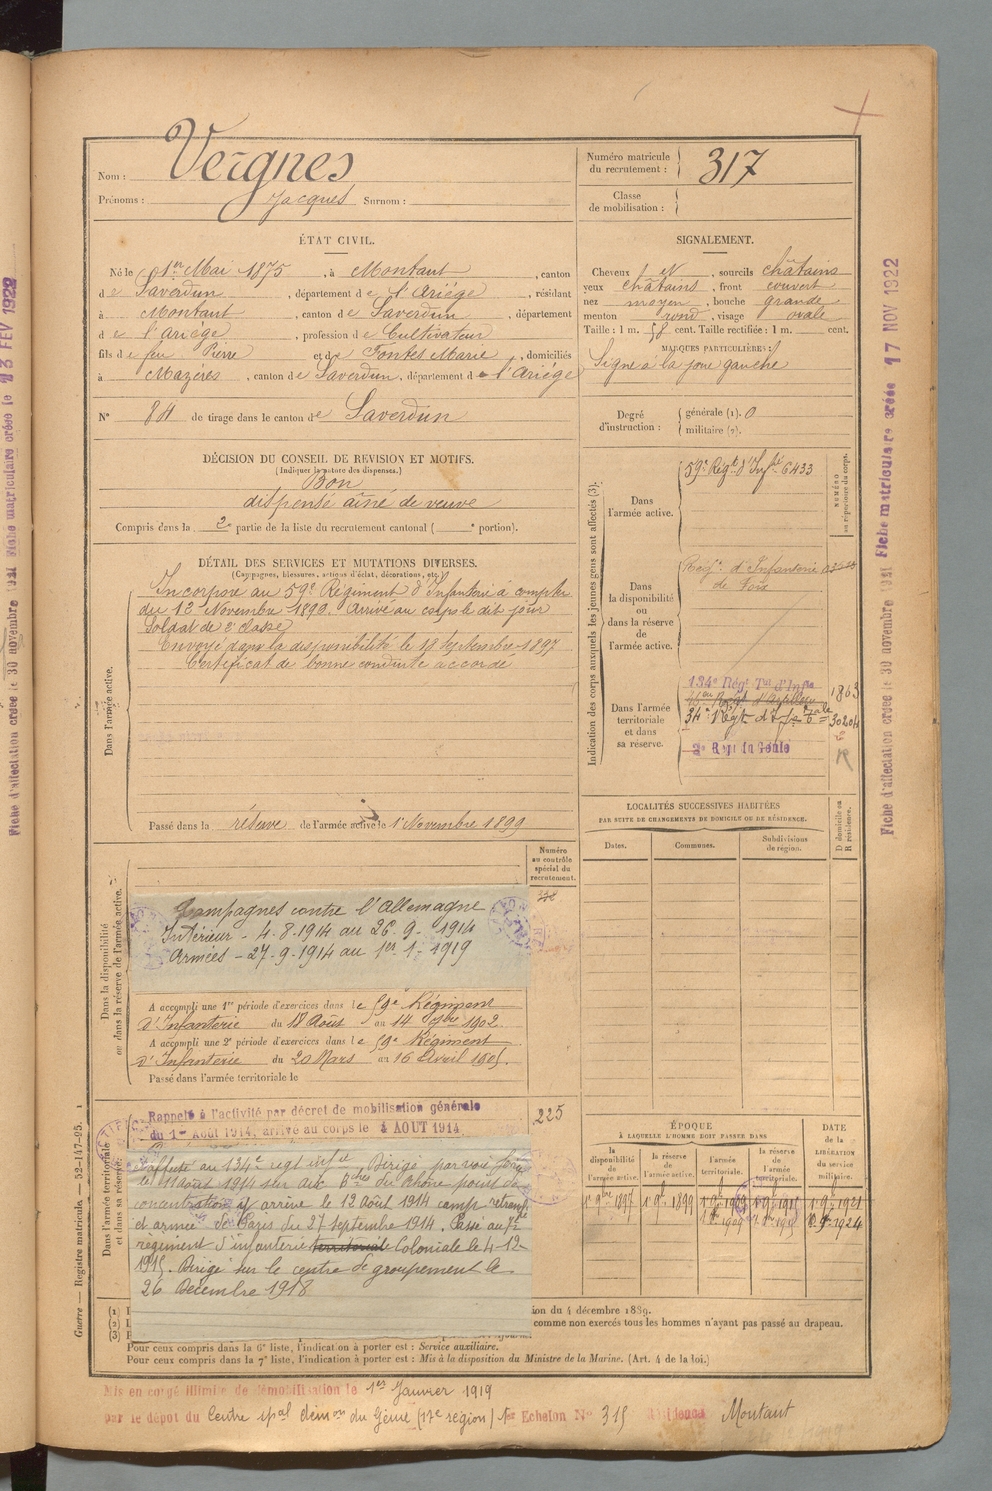 Nom : Vergnes
Prénoms : Jacques Surnom :
Numéro matricule du recrutement : 317
Classe de mobilisation :
ÉTAT CIVIL.
Né le 1er Mai 1875, à Montaut, canton
de Saverdun, département de l'Ariége, résidant
à Montaut, canton de Saverdun, département
de l'Ariége, profession de Cultivateur
fils de feu Pierre et de Fontes Marie, domiciliés
à Mazéres, canton de Saverdun, département de l'Ariége
N° 84 de tirage dans le canton de Saverdun
SIGNALEMENT.
Cheveux N, sourcils châtains
yeux châtains, front couvert
nez moyen, bouche grande
menton rond, visage ovale
Taille : 1 m. 58 cent. Taille rectifiée : 1 m. cent.
MARQUES PARTICULIÈRES :
Signe à la joue gauche
Degré d'instruction : générale (1). 0
militaire (2).
DÉCISION DU CONSEIL DE REVISION ET MOTIFS.
(Indiquer la nature des dispenses.)
Bon
dispensé aîné de veuve
Compris dans la 2e partie de la liste du recrutement cantonal ( e portion).
DÉTAIL DES SERVICES ET MUTATIONS DIVERSES.
(Campagnes, blessures, actions d'éclat, décorations, etc.)
Dans l'armée active.
Incorporé au 59e Régiment d'Infanterie à compter
du 13 Novembre 1896. Arrivé au corps le dit jour
Soldat de 2e classe
Envoyé dans la disponibilité le 18 Septembre 1897
Certificat de bonne conduite accordé
Passé dans la réserve de l'armée active le 1 Novembre 1899
Indication des corps auxquels les jeunes gens sont affectés (3).
NUMÉRO au répertoire du corps.
Dans l'armée active.
59e Régt d'Infie 6433
Dans la disponibilité ou dans la réserve de l'armée active.
Regt d'Infanterie
de Foix
Dans l'armée territoriale et dans sa réserve.
134e Régt Tal d'Infie
1863
34e Régt d'Infie 30204
2e Regt du Génie
R
LOCALITÉS SUCCESSIVES HABITÉES
PAR SUITE DE CHANGEMENTS DE DOMICILE OU DE RÉSIDENCE.
Dates. Communes. Subdivisions de région.
D domicile ou R résidence.
Numéro au contrôle spécial du recrutement.
Dans la disponibilité ou dans la réserve de l'armée active.
Campagnes contre l'Allemagne
Intérieur - 4.8.1914 au 26.9.1914
Armées - 27.9.1914 au 1er.1.1919
A accompli une 1re période d'exercices dans le 59e Régiment
d'Infanterie du 18 Août au 14 7bre 1902.
A accompli une 2e période d'exercices dans le 59e Régiment
d'Infanterie du 20 Mars au 16 Avril 1905.
Passé dans l'armée territoriale le
Dans l'armée territoriale et dans sa réserve.
Rappelé à l'activité par décret de mobilisation générale
du 1er Août 1914, arrivé au corps le 4 AOUT 1914
225
affecté au 134e regt infie Dirigé par voie ferrée
le 11 août 1914 sur aux Bches du Rhône point de
concentration y arrivé le 12 Août 1914 camp retranché
et armée de Paris du 27 septembre 1914. Passé au 7e
régiment d'infanterie territoriale Coloniale le 4-12-
1915. Dirigé sur le centre de groupement le
26 Décembre 1918
ÉPOQUE
À LAQUELLE L'HOMME DOIT PASSER DANS
la disponibilité de l'armée active. la réserve de l'armée active. l'armée territoriale. la réserve de l'armée territoriale.
DATE de la LIBÉRATION du service militaire.
1 9bre 1897 1 9bre 1899 1 9bre 1909 1 9bre 1915 1 9bre 1921
ion du 4 décembre 1889.
comme non exercés tous les hommes n'ayant pas passé au drapeau.
Pour ceux compris dans la 6e liste, l'indication à porter est : Service auxiliaire.
Pour ceux compris dans la 7e liste, l'indication à porter est : Mis à la disposition du Ministre de la Marine. (Art. 4 de la loi.)
Mis en congé illimité de démobilisation le 1er Janvier 1919
par le dépot du Centre spal démon du Génie (17e région) 1er Echelon N° 315 Résidence Montaut
Guerre — Registre matricule. — 52-147-95.
Fiche d'affectation créée le 30 novembre 1921 Fiche matriculaire créée le 13 FEV 1922
Fiche d'affectation créée le 30 novembre 1921 Fiche matriculaire créée 17 NOV 1922